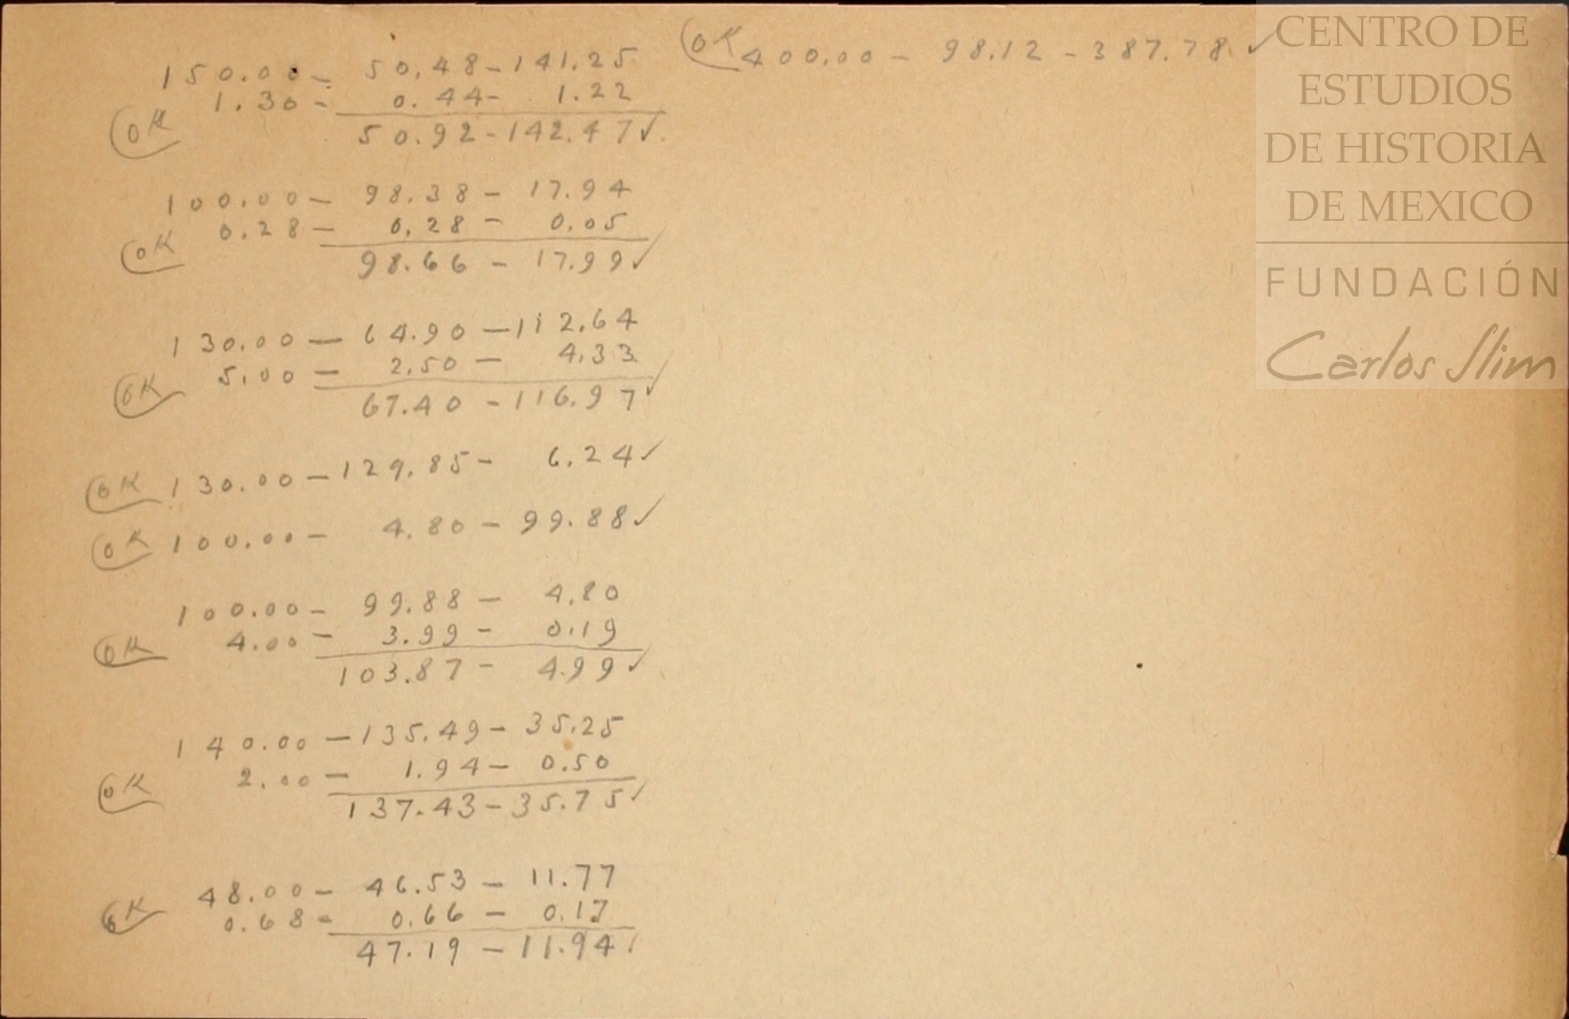 150.00 - 50.48 - 141.25
1.30 - 0.44 - 1.22
OK
50.92 - 142.47 ✓
100.00 - 98.38 - 17.94
0.28 - 0.28 - 0.05
OK
98.66 - 17.99 ✓
130.00 - 64.90 - 112.64
5.00 - 2.50 - 4.33
OK
67.40 - 116.97 ✓
OK 130.00 - 129.85 - 6.24 ✓
OK 100.00 - 4.80 - 99.88 ✓
100.00 - 99.88 - 4.80
4.00 - 3.99 - 0.19
OK
103.87 - 4.99 ✓
140.00 - 135.49 - 35.25
2.00 - 1.94 - 0.50
OK
137.43 - 35.75 ✓
48.00 - 46.53 - 11.77
0.68 - 0.66 - 0.17
OK
47.19 - 11.94 ✓
OK 400.00 - 98.12 - 387.78 ✓
CENTRO DE
ESTUDIOS
DE HISTORIA
DE MEXICO
FUNDACIÓN
Carlos Slim